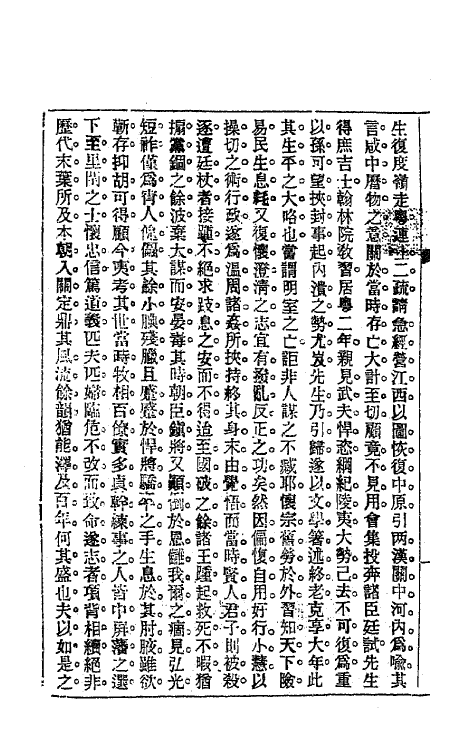 生復度嶺走粵連上二疏請急經營江西以圖恢復中原引兩漢關中河內爲喩其
言咸中曆物之意關於當時存亡大計至切願竟不見用會集投奔諸臣廷試先生
得庶吉士翰林院敎習居粵二年親見武夫悍恣綱紀陵夷大勢已去不可復爲重
以孫可望挾封事起內潰之勢尤岌先生乃引歸遂以文學著述終老克享大年此
其生平之大略也嘗謂明室之亡詎非人謀之不臧耶懷宗舊勞於外習知天下險
易民生息耗又復懷澄清之志宜有撥亂反正之功矣然因偏復自用好行小慧以
操切之術行政遂爲溫周諸姦所挾持終其身末由覺悟而當時賢人君子則被殺
逐遭廷杖者接踵不絕求跂息之安而不得迨至國破之餘諸王踵起救死不暇猶
揚黨錮之餘波棄大謀而安晏毒其時朝臣鎭將又顚倒於恩讎我爾之痼見弘光
短祚僅爲宵人傀儡其餘小腆殘臘且廢於悍將驕卒之手生息於其肘腋雖欲
靳存抑胡可得顧今夷考其世當時牧相百僚實多貞幹練事之人皆中屏藩之選
下至里閈之士懷忠信篤道義匹夫匹婦臨危不改而致命遂志者項背相續絕非
歷代末葉所及本朝入關定鼎其風流餘韻猶能澤及百年何其盛也夫以如是之